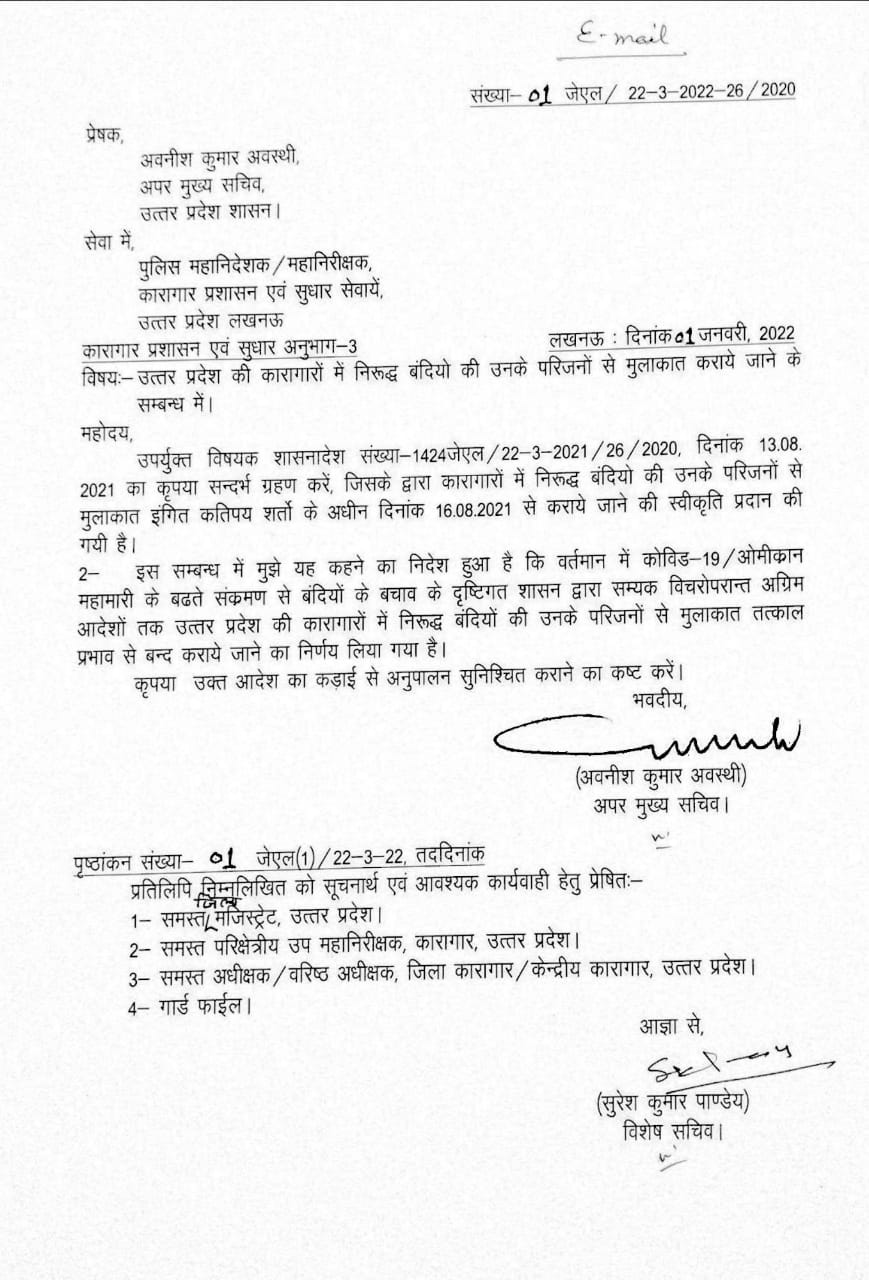 E-mail
संख्या- 01 जेएल/ 22-3-2022-26/2020
प्रेषक,
अवनीश कुमार अवस्थी,
अपर मुख्य सचिव,
उत्तर प्रदेश शासन।
सेवा में,
पुलिस महानिदेशक/महानिरीक्षक,
कारागार प्रशासन एवं सुधार सेवायें,
उत्तर प्रदेश लखनऊ
कारागार प्रशासन एवं सुधार अनुभाग-3 लखनऊ : दिनांक 01 जनवरी, 2022
विषयः- उत्तर प्रदेश की कारागारों में निरूद्ध बंदियो की उनके परिजनों से मुलाकात कराये जाने के
सम्बन्ध में।
महोदय,
उपर्युक्त विषयक शासनादेश संख्या-1424जेएल/22-3-2021/26/2020, दिनांक 13.08.
2021 का कृपया सन्दर्भ ग्रहण करें, जिसके द्वारा कारागारों में निरूद्ध बंदियो की उनके परिजनों से
मुलाकात इंगित कतिपय शर्तो के अधीन दिनांक 16.08.2021 से कराये जाने की स्वीकृति प्रदान की
गयी है।
2- इस सम्बन्ध में मुझे यह कहने का निदेश हुआ है कि वर्तमान में कोविड-19/ओमीक्रान
महामारी के बढते संक्रमण से बंदियों के बचाव के दृष्टिगत शासन द्वारा सम्यक विचरोपरान्त अग्रिम
आदेशों तक उत्तर प्रदेश की कारागारों में निरूद्ध बंदियों की उनके परिजनों से मुलाकात तत्काल
प्रभाव से बन्द कराये जाने का निर्णय लिया गया है।
कृपया उक्त आदेश का कड़ाई से अनुपालन सुनिश्चित कराने का कष्ट करें।
भवदीय,
(अवनीश कुमार अवस्थी)
अपर मुख्य सचिव।
पृष्ठांकन संख्या- 01 जेएल(1)/22-3-22, तददिनांक
प्रतिलिपि निम्नलिखित को सूचनार्थ एवं आवश्यक कार्यवाही हेतु प्रेषितः-
1- समस्त जिला मजिस्ट्रेट, उत्तर प्रदेश।
2- समस्त परिक्षेत्रीय उप महानिरीक्षक, कारागार, उत्तर प्रदेश।
3- समस्त अधीक्षक/वरिष्ठ अधीक्षक, जिला कारागार/केन्द्रीय कारागार, उत्तर प्रदेश।
4- गार्ड फाईल।
आज्ञा से,
(सुरेश कुमार पाण्डेय)
विशेष सचिव।